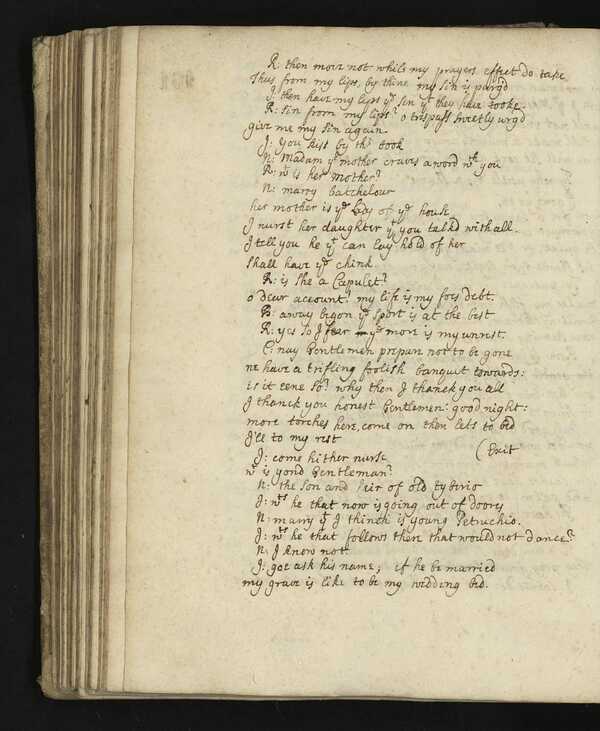 R. then move not while my prayers effect do take
thus from my lips, by thine my sin is purg'd
J. then have my lips yᵉ sin yᵗ they have tooke.
R: sin from my lips? o trespass sweetly urg'd
give me my sin again.
J: you kist by thᵉ book
N: Madam yᵉ mother craves a word wᵗʰ you
R: wᵗ is her mother?
N: marry batchelour
her mother is yᵉ Lady of yᵉ house
J nurst her daughter yᵗ you talkd withall.
J tell you he yᵗ can lay hold of her
shall have yᵉ chink.
R: is she a Capulet?
o dear account! my life is my foes debt.
B: away begon yᵉ sport is at the best
R: yes so J fear yᵉ more is my unrest.
C: nay Gentlemen prepare not to be gone
we have a trifling foolish banquit towards:
is it eene so? why then J thanck you all
J thanck you honest Gentlemen: good night:
more torches here, come on then lets to bed
J'le to my rest
(Exit
J: come hither nurse
wᵗ is yond Gentleman?
N: the son and heir of old tyberio
J: wᵗs he that now is going out of doors
N: marry yᵗ J thinck is young Petruchio.
J: wᵗs he that follows then that would not dance?
N: J know not
J: goe ask his name; if he be married
my grave is like to be my wedding bed.